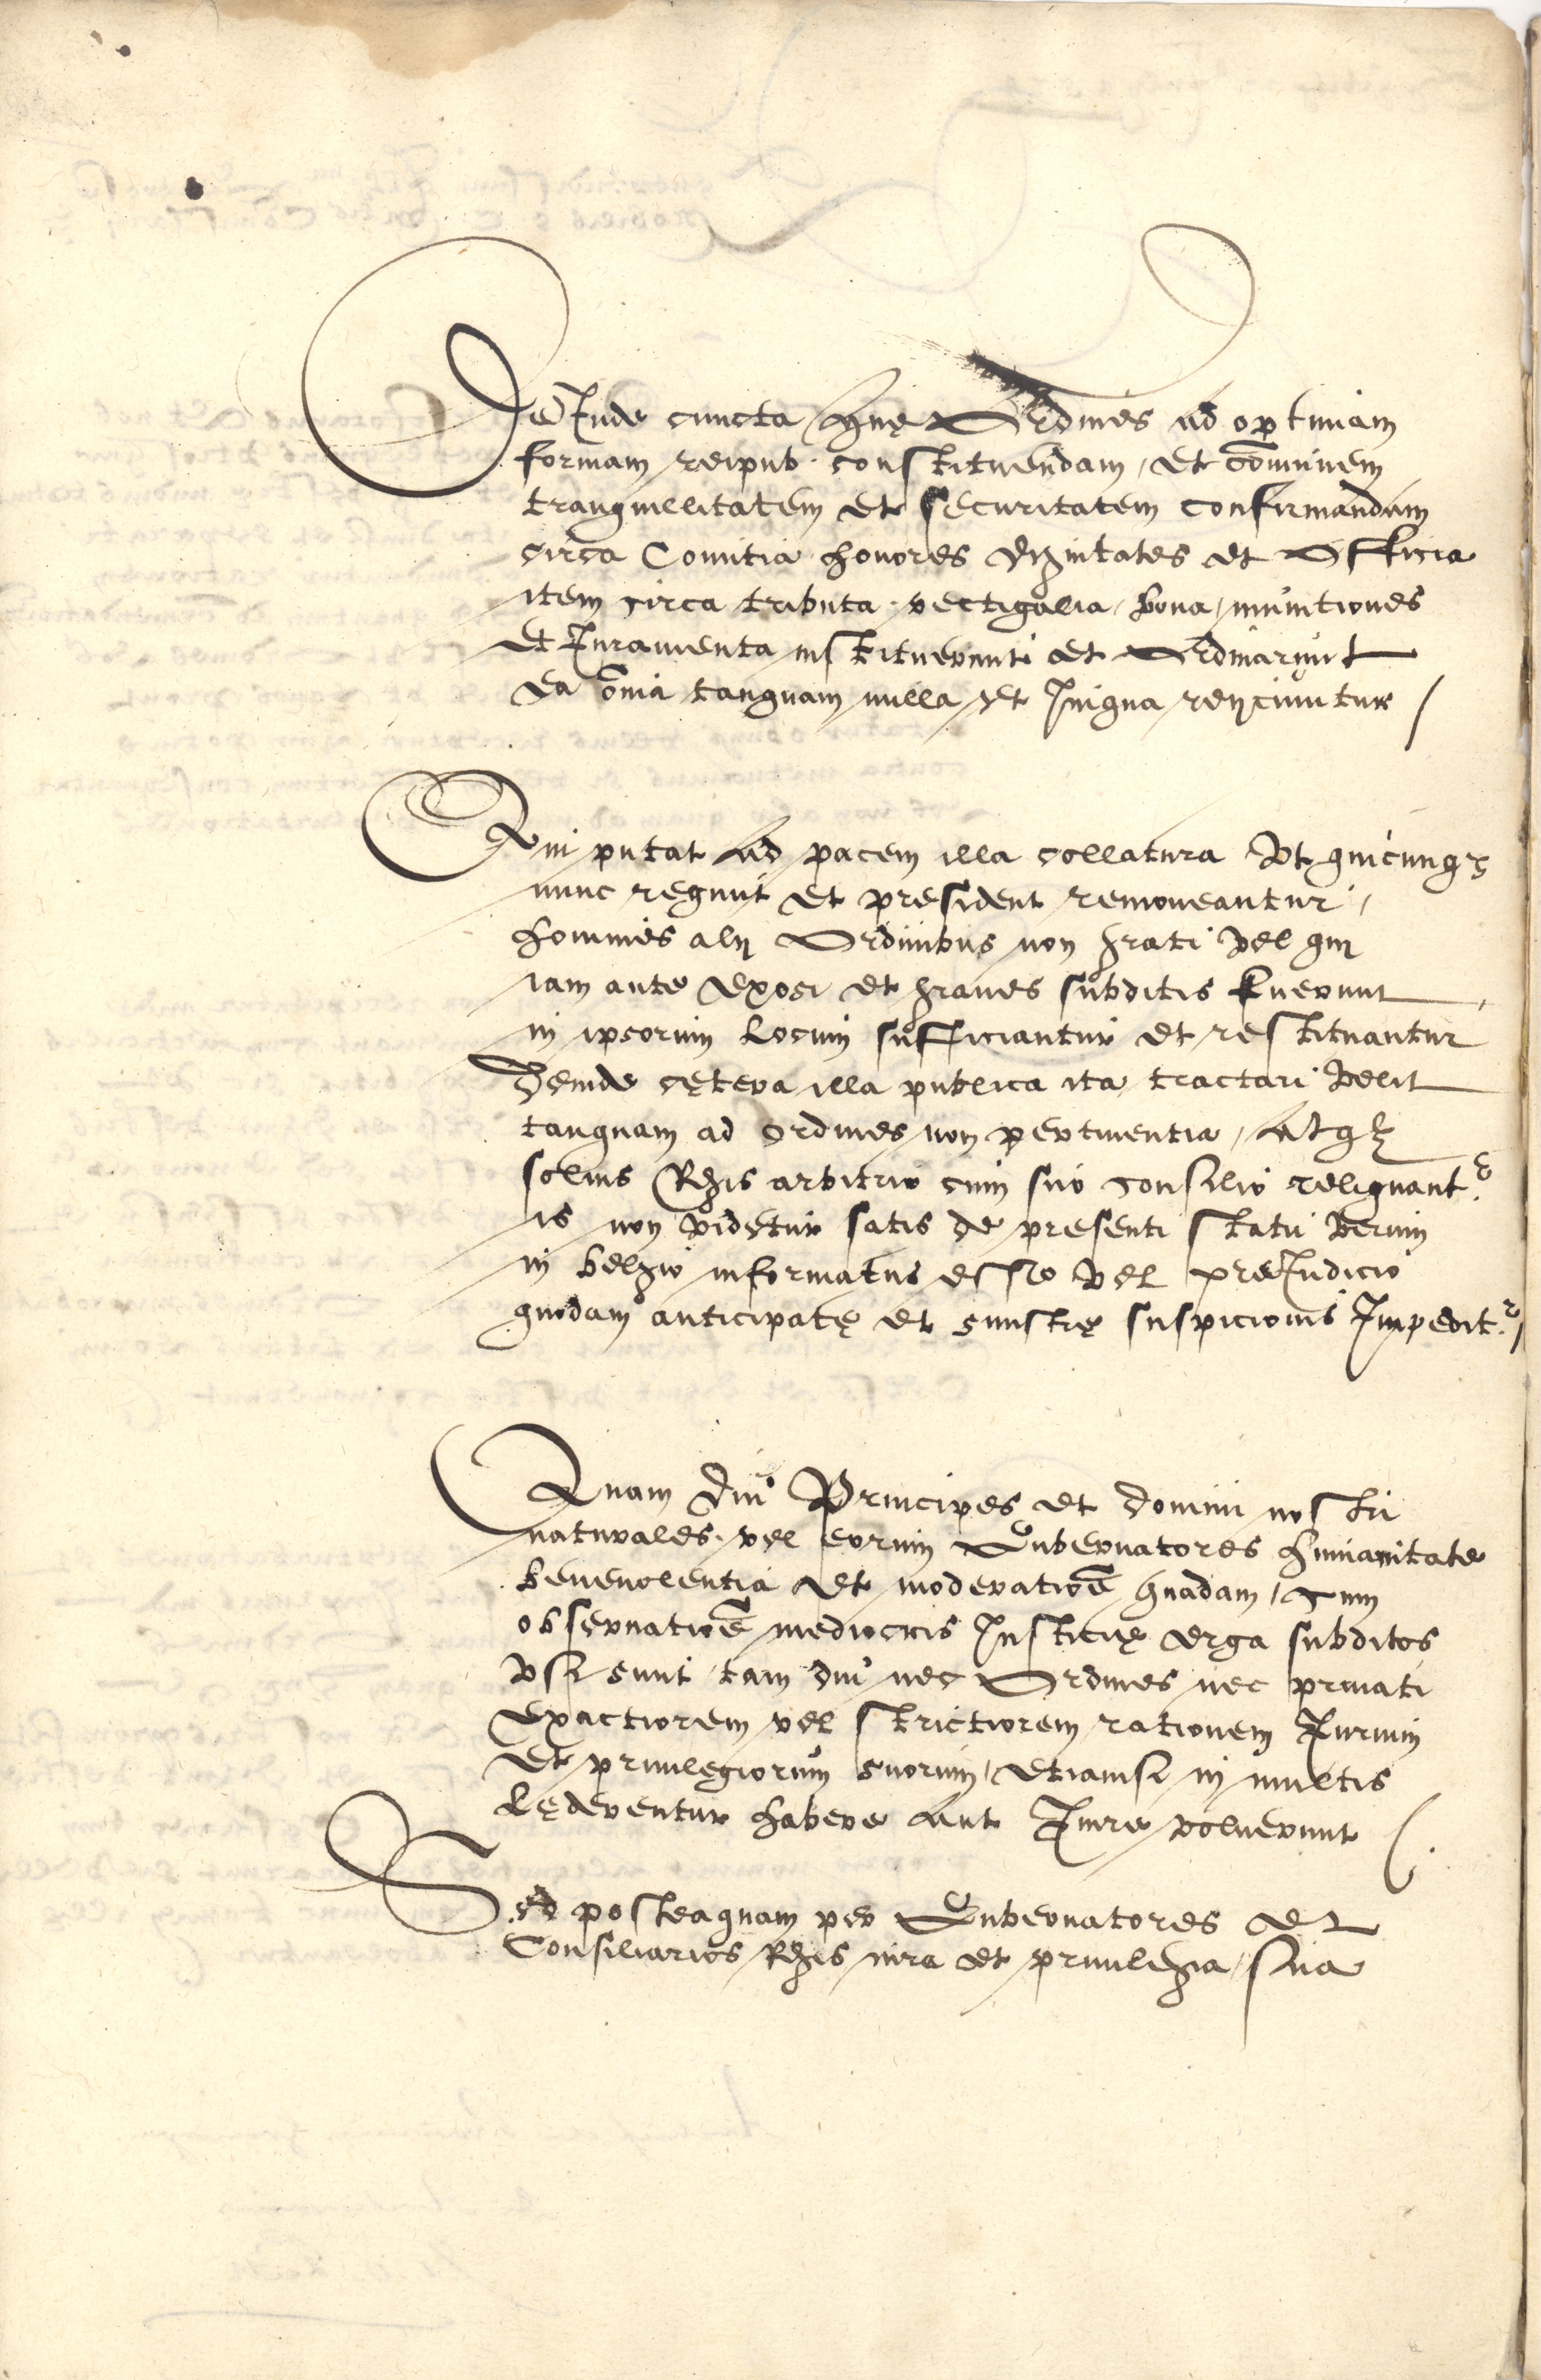 DeInde cuncta quę Ordines ad optimam
formam reipub. constituendam, et com̄unem
tranquillitatem et securitatem confirmandam
circa Comitia honores dignitates et Officia
item circa tributa, vectigalia, bona, munitiones
et Iuramenta instituerunt et Ordinarunt
ea om̄ia tanquam nulla et Iniqua reijciuntur /
Qui putat ad pacem illa collatura Vt quicunqꝫ
nunc regunt et president remoueantur,
homines alij Ordinibus non grati Vel qui
iam ante exosi et graues subditis fuerunt
in ipsorum locum sufficiantur et restituantur
Deinde cętera illa publica ita tractari Velit
tanquam ad Ordines non pertinentia, Atqꝫ
solius Regis arbitrio cum suo consilio reliquant.r
is non videtur satis de presenti statu Rerum
in belgio informatus esse Vel preIudicio
quodam anticipatę et sinistrę suspicionis Impedit.r /
Quam diu Principes et domini nostri
naturales vel eorum Gubernatores humanitate
beneuolentia et moderatiōe quadam, cum
obseruatiōe mediocris Iusticię erga subditos
Vsi sunt, tam diu nec Ordines nec priuati
exactiorem vel strictiorem rationem Iurium
et priuilegiorum suorum, etiamsi in multis
lęderentur habere aut Inire voluerunt /.
Sed posteaquam per Gubernatores et
Consiliarios Regis iura et priuilegia sua